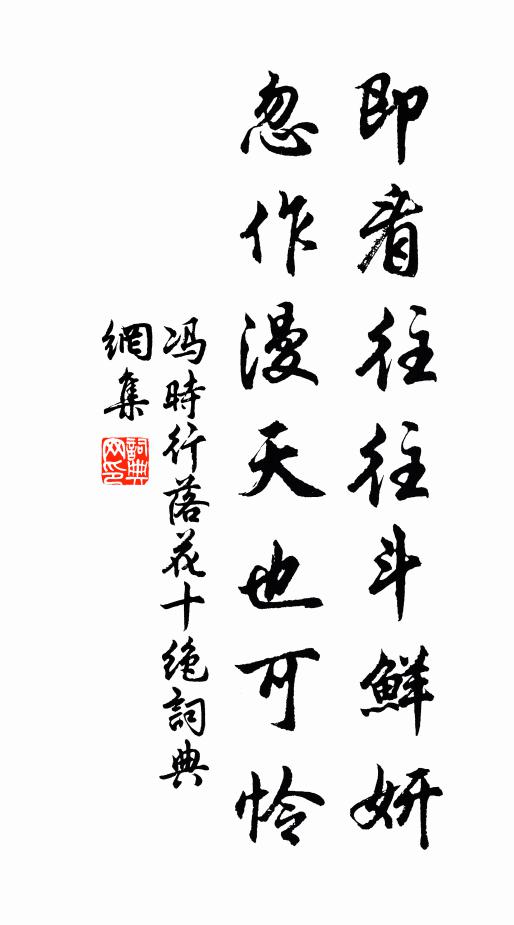 即看往往斗鮮妍
忽作漫天也可怜
冯時行落花十绝詞典
網集
詞典网印